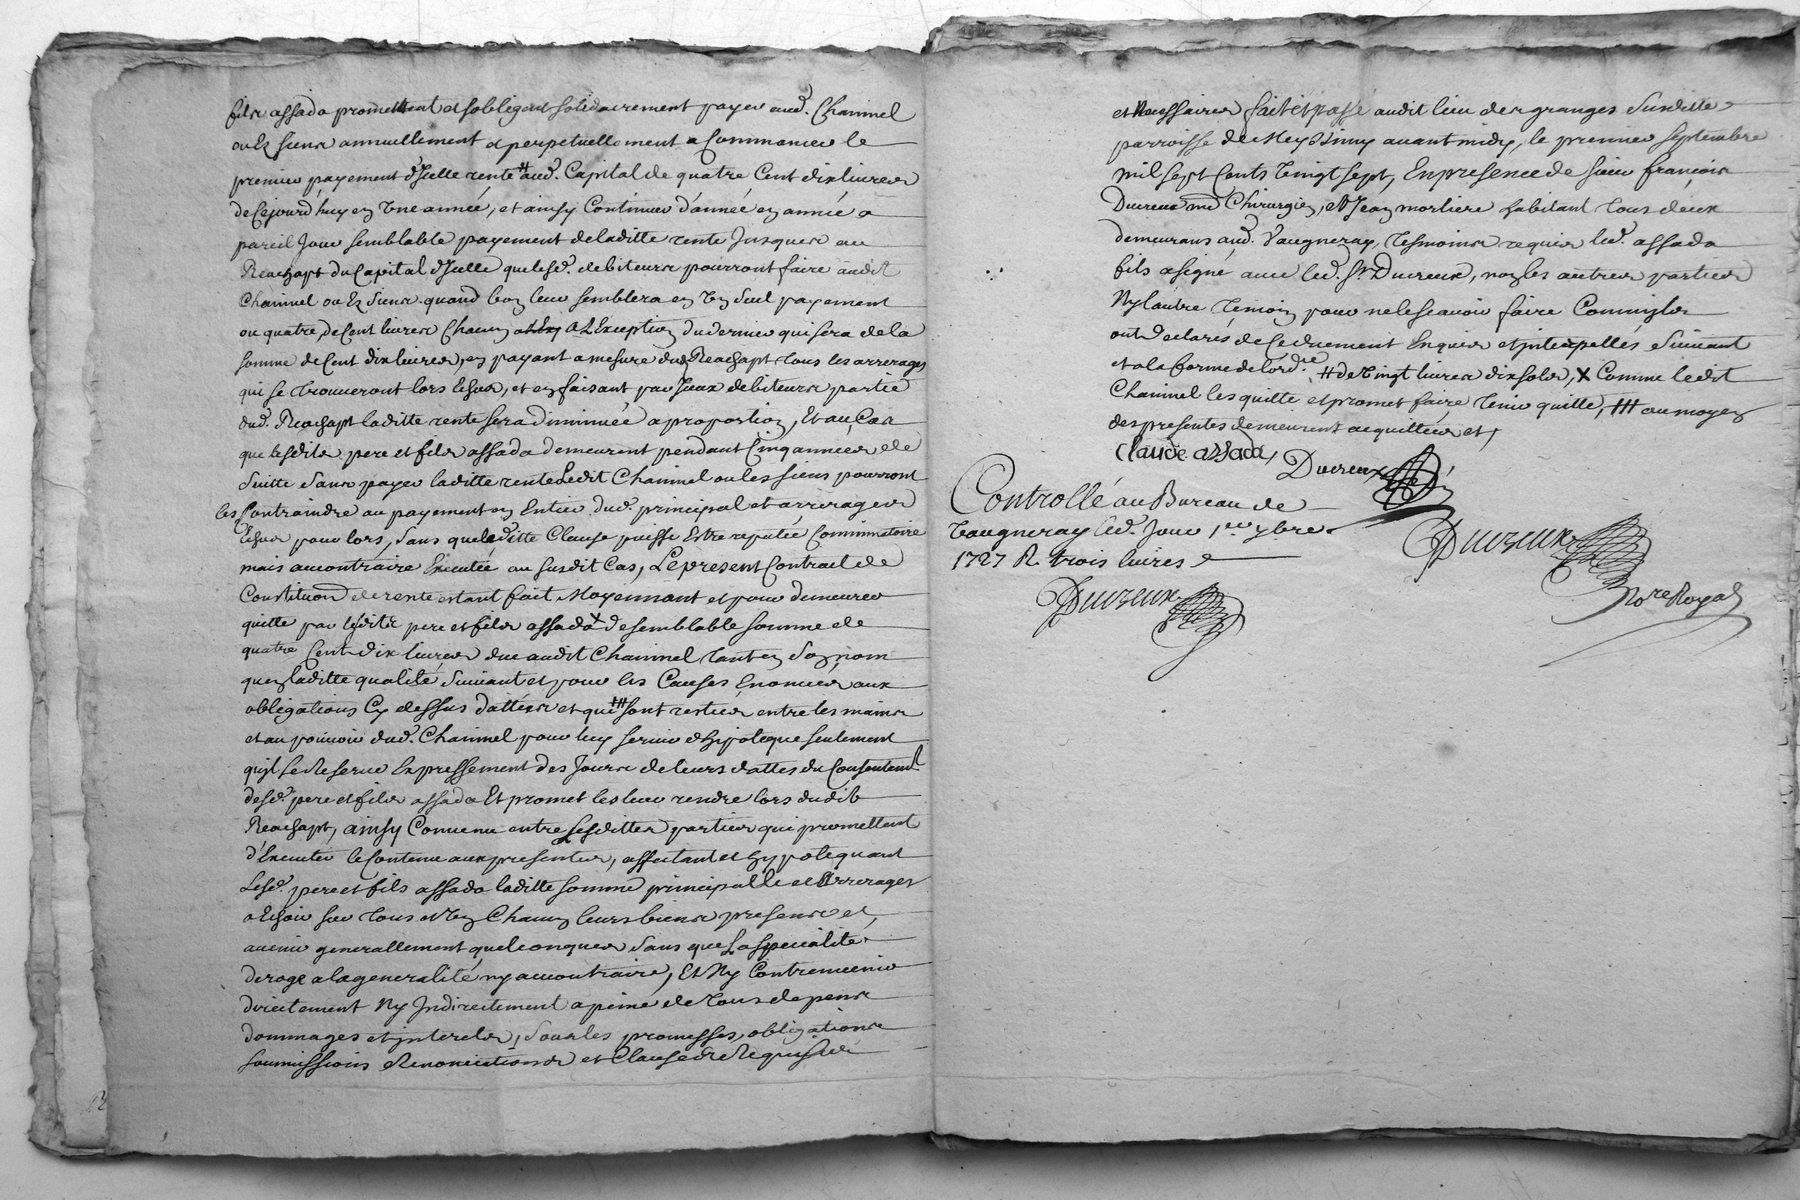 fils assada promettent et sobligent solidairement payer aud. Charmel
ou Ez siens annuellement et perpetuellement a Commancer le
premier payement d'Icelle rente # aud. Capital de quatre Cent dix livres
de Cejourd'huy en Une année, et ainsy Continuer d'année en année a
pareil Jour semblable payement de laditte rente Jusques au
Reachapt du Capital d'Icelle que lesd. debiteurs pourront faire audit
Charmel ou Ez siens quand bon leur semblera en Un seul payement
ou quatre, de Cent livres Chacun a L'Exception du dernier qui sera de la
somme de Cent dix livres, en payant a mesure dud. Reachapt tous les arrerages
qui se trouveront lors Echus, et en faisant par Iceux debiteurs partie
dud. Reachapt laditte rente sera diminuée a proportion, Et au Cas
que lesdits pere et fils assada demeurent pendant Cinq années de
suitte sans payer laditte rente Ledit Charmel ou les siens pourront
les Contraindre au payement en Entier dud. principal et arrerages
Echus pour lors, sans que laditte Clause puisse Estre reputée Comminatoire
mais au contraire Executée au susdit Cas, Le present Contract de
Constituon de rente estant fait Moyennant et pour demeurer
quitte par lesdits pere et fils assada X de semblable somme de
quatre Cent dix livres due audit Charmel tant en son nom
qu'en laditte qualité suivant et pour les Causes Enoncées aux
obligations Cy dessus dattées et qui ### sont restées entre les mains
et au pouvoir dud. Charmel pour luy servir d'hipoteque seulement
qu'il se Reserve Expressement des Jours de leurs dattes du Consentemt
desd. pere et fils assada Et promet les leur rendre lors dudit
Reachapt, ainsy Convenu entre Lesdittes parties qui promettent
d'Executer le Contenu aux presentes, affectant et hypotequant
Lesd. pere et fils assada laditte somme principalle et Arrerages
a Echoir sur tous et Un Chacun leurs biens presens et
avenir generallement quelconques sans que La specialité
deroge a la generalité ny au contraire, Et Ny Contrevenir
directement Ny Indirectement a peine de tous depens
dommages et interets, sous les promesses, obligations
soumissions Renonciations et Clauses Requises
et Necessaires fait et passé audit lieu des granges susditte
parroisse de Meyssimy avant midy, le premier septembre
mil sept Cents Vingt sept, En presence de sieur françois
Ducreux md Chirurgien, et Jean mortiere habitant tous deux
demeurans aud. Vaugneray, tesmoins requis led. assada
fils a signé avec led. Sr. Ducreux, non les autres parties
Ny l'autre temoin pour ne le scavoir faire Comm'ils
ont declarés de Ce duement Enquis et interpellés suivant
et a la forme de l'ord.re # de Vingt livres dix sols, X Comme ledit
Charmel les quitte et promet faire tenir quitte, ### au moyen
des presentes demeurent acquittées et,
Claude assada, Ducreux
Controllé au Bureau de
Vaugneray led. Jour 1er 7bre
1727 R. trois livres
Ducreux
Ducreux
No.re Royal